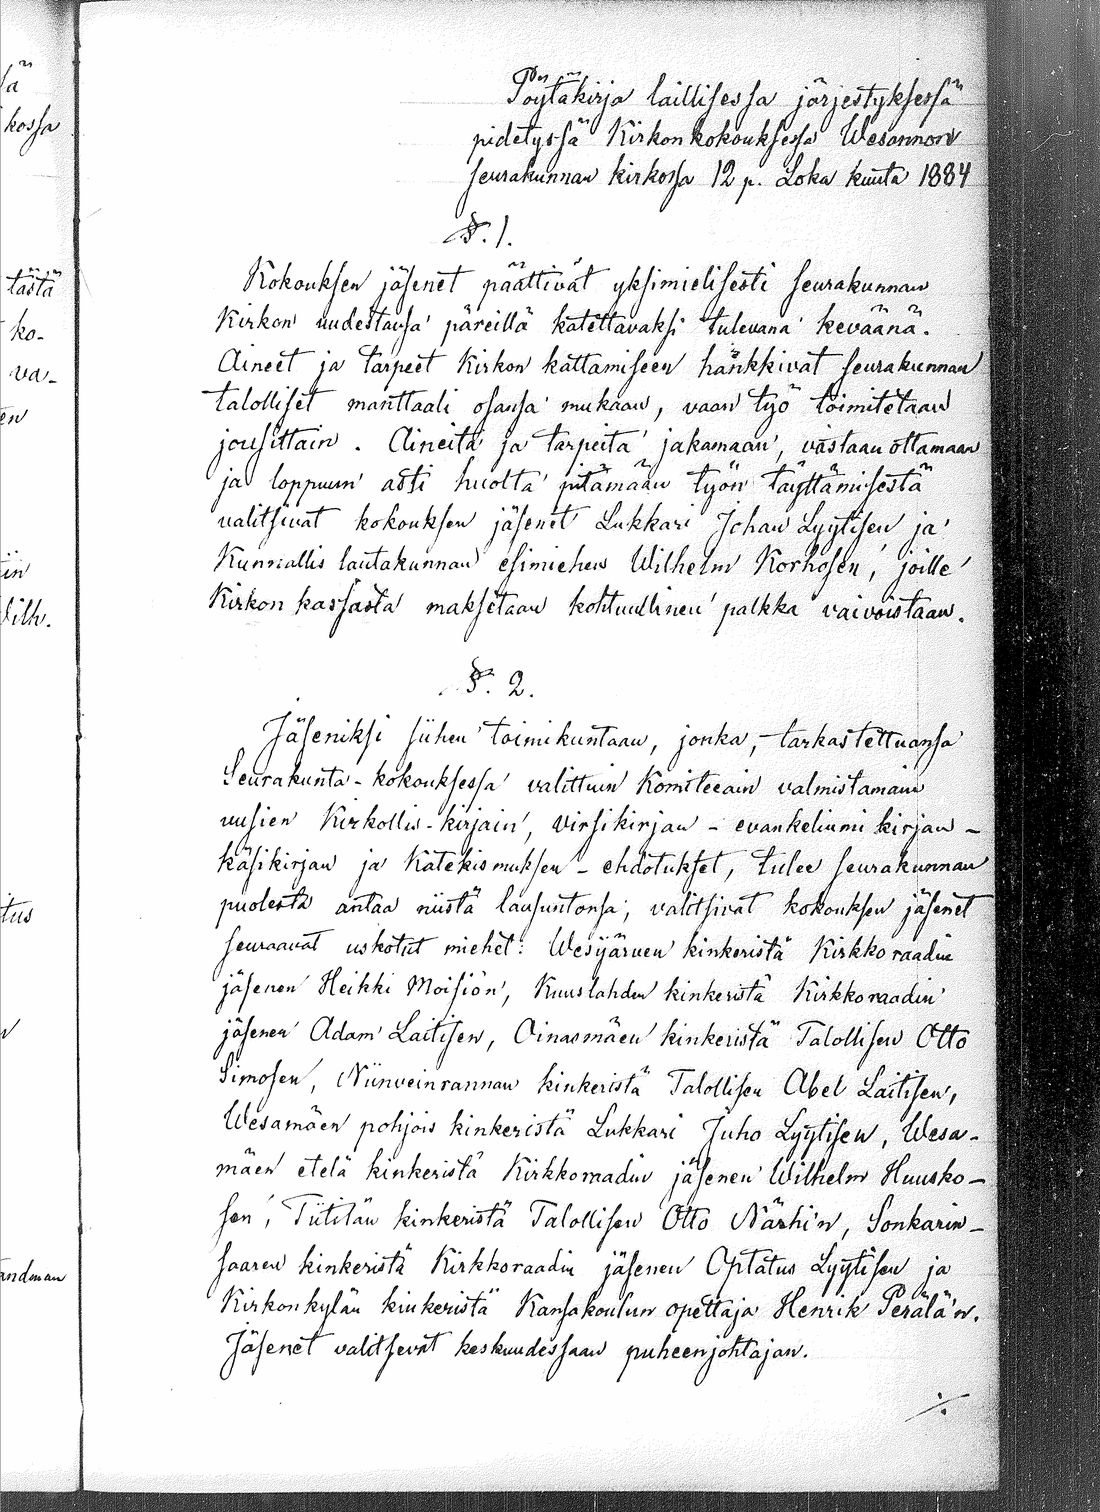 Pöytäkirja laillisessa järjestyksessä
pidetyssä Kirkonkokouksessa Wesannon
seurakunnan kirkossa 12 p. Loka kuuta 1884
§. 1.
Kokouksen jäsenet päättivät yksimielisesti seurakunnan
Kirkon uudestansa päreillä katettavaksi tulevana keväänä.
Aineet ja tarpeet Kirkon kattamiseen hankkivat seurakunnan
talolliset manttaali osansa mukaan, vaan työ toimitetaan
jousittain. Aineita ja tarpeita jakamaan, vastaan ottamaan
ja loppuun asti huolta pitämään työn täyttämisestä
valitsivat kokouksen jäsenet Lukkari Johan Lyytisen ja
Kunnallis lautakunnan esimiehen Wilhelm Korhosen, joille
Kirkon kassasta maksetaan kohtuullinen palkka vaivoistaan.
§. 2.
Jäseniksi siihen toimikuntaan, jonka, tarkastettuansa
Seurakunta-kokouksessa valittuin Komiteeain valmistamain
uusien Kirkollis-kirjain, virsikirjan - evankeliumi kirjan -
käsikirjan ja Katekismuksen - ehdotukset, tulee seurakunnan
puolesta antaa niistä lausuntonsa, valitsivat kokouksen jäsenet
seuraavat uskotut miehet: Wesijärven kinkeristä Kirkkoraadin
jäsenen Heikki Moision, Kuuslahden kinkeristä Kirkkoraadin
jäsenen Adam Laitisen, Oinasmäen kinkeristä Talollisen Otto
Simosen, Niinveinrannan kinkeristä Talollisen Abel Laitisen,
Wesamäen pohjois kinkeristä Lukkari Juho Lyytisen, Wesa-
mäen etelä kinkeristä Kirkkoraadin jäsenen Wilhelm Huusko-
sen, Tiitilän kinkeristä Talollisen Otto Närhi'n, Sonkarin-
saaren kinkeristä Kirkkoraadin jäsenen Optatus Lyytisen ja
Kirkonkylän kinkeristä Kansakoulun opettaja Henrik Perälä'n.
Jäsenet valitsevat keskuudessaan puheenjohtajan.
./.